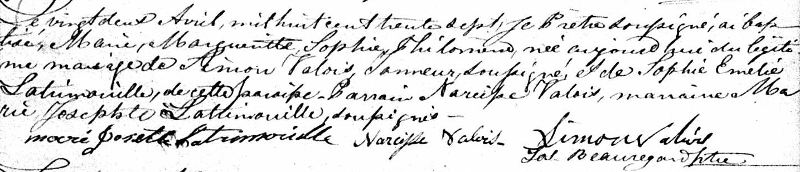 Le vingt deux Avril, mil huit cent trente sept, je Pretre soussigné, ai bap
tisé, Marie, Margueritte, Sophie, Philomene, née aujourd'hui du légiti
me mariage de Simon Valois, Tanneur, soussigné, et de Sophie Emélie
Latrimouille, de cette paroisse. Parrain Narcisse Valois, marraine Ma
rie Josephte Latrimouille, soussignés -
marie Josette Latrimouille Narcisse Valois - Simon Valois
Jos. Beauregard Ptre